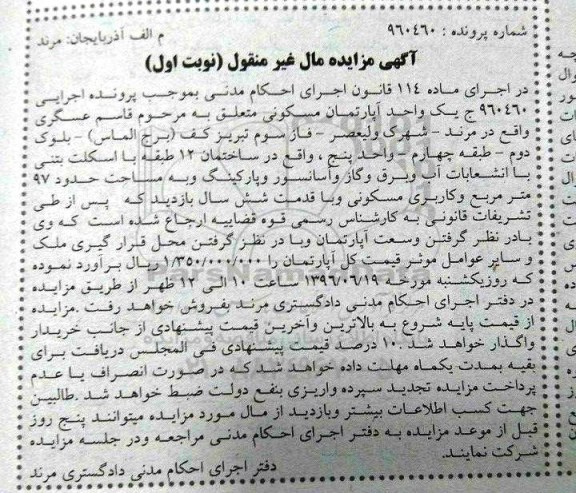 شماره پرونده : ۹۶۰۴۶۰ م الف آذربایجان: مرند
آگهی مزایده مال غیر منقول (نوبت اول)
در اجرای ماده ۱۱۴ قانون اجرای احکام مدنی بموجب پرونده اجرایی
۹۶۰۴۶۰ ج یک واحد آپارتمان مسکونی متعلق به مرحوم قاسم عسگری
واقع در مرند - شهرک ولیعصر - فاز سوم تبریز کف (برج الماس) - بلوک
دوم - طبقه چهارم - واحد پنج ، واقع در ساختمان ۱۲ طبقه با اسکلت بتنی
با انشعابات آب وبرق وگاز وآسانسور وپارکینگ وبه مساحت حدود ۹۷
متر مربع وکاربری مسکونی وبا قدمت شش سال بازدید که پس از طی
تشریفات قانونی به کارشناس رسمی قوه قضاییه ارجاع شده است که وی
بادر نظر گرفتن وسعت آپارتمان وبا در نظر گرفتن محل قرار گیری ملک
و سایر عوامل موثر قیمت کل آپارتمان را ۱/۳۵۰/۰۰۰/۰۰۰ ریال برآورد نموده
که روزیکشنبه مورخه ۱۳۹۶/۰۶/۱۹ ساعت ۱۰ الی ۱۲ ظهر از طریق مزایده
در دفتر اجرای احکام مدنی دادگستری مرند بفروش خواهد رفت .مزایده
از قیمت پایه شروع به بالاترین وآخرین قیمت پیشنهادی از جانب خریدار
واگذار خواهد شد.۱۰ درصد قیمت پیشنهادی فی المجلس دریافت برای
بقیه بمدت یکماه مهلت داده خواهد شد که در صورت انصراف یا عدم
پرداخت مزایده تجدید سپرده واریزی بنفع دولت ضبط خواهد شد .طالبین
جهت کسب اطلاعات بیشتر وبازدید از مال مورد مزایده میتوانند پنج روز
قبل از موعد مزایده به دفتر اجرای احکام مدنی مراجعه ودر جلسه مزایده
شرکت نمایند.
دفتر اجرای احکام مدنی دادگستری مرند
ParsNamadData